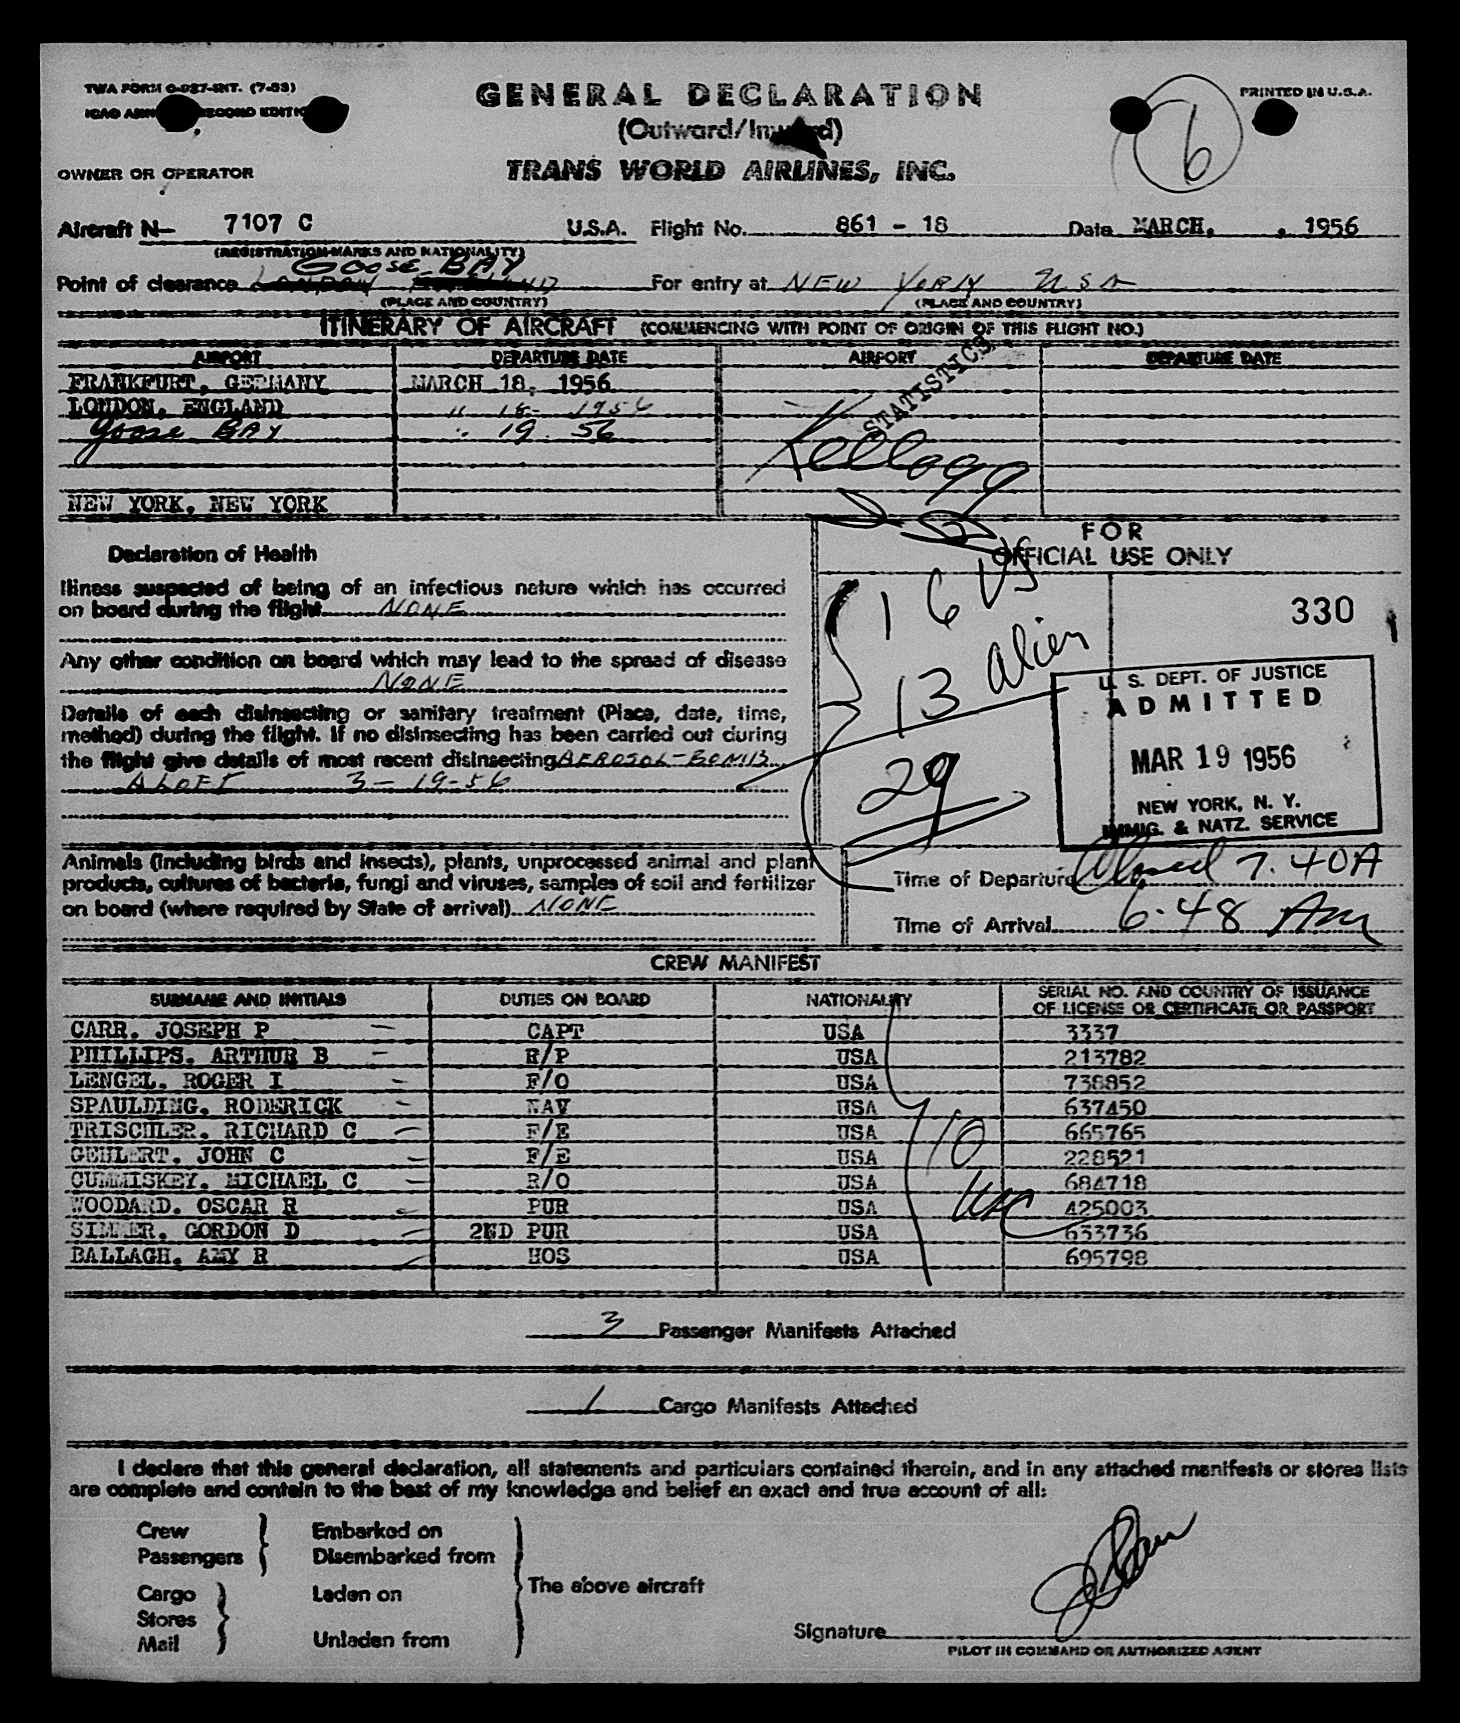 TWA FORM O-927-INT. (7-53)
GENERAL DECLARATION
PRINTED IN U.S.A.
SECOND EDITION
(Outward/Inward)
6
OWNER OR OPERATOR
TRANS WORLD AIRLINES, INC.
Aircraft N— 7107 C U.S.A. Flight No. 861 - 18 Date MARCH, , 1956
(REGISTRATION MARKS AND NATIONALITY)
GOOSE BAY
Point of clearance LONDON ENGLAND For entry at NEW YORK USA
(PLACE AND COUNTRY) (PLACE AND COUNTRY)
ITINERARY OF AIRCRAFT (COMMENCING WITH POINT OF ORIGIN OF THIS FLIGHT NO.)
AIRPORT DEPARTURE DATE AIRPORT DEPARTURE DATE
FRANKFURT, GERMANY MARCH 18, 1956
LONDON, ENGLAND " 18- 1956
Goose BAY " 19 56
STATISTICS
Kellogg
NEW YORK, NEW YORK
Declaration of Health
FOR
OFFICIAL USE ONLY
Illness suspected of being of an infectious nature which has occurred
on board during the flight NONE
16 US
330
Any other condition on board which may lead to the spread of disease
NONE
13 alien
Details of each disinsecting or sanitary treatment (Place, date, time,
method) during the flight. If no disinsecting has been carried out during
the flight give details of most recent disinsecting AEROSOL-BOMB
ALOFT 3-19-56
29
U. S. DEPT. OF JUSTICE
ADMITTED
MAR 19 1956
NEW YORK, N. Y.
IMMIG. & NATZ. SERVICE
Animals (including birds and insects), plants, unprocessed animal and plant
products, cultures of bacteria, fungi and viruses, samples of soil and fertilizer
on board (where required by State of arrival) NONE
Time of Departure 7.40A
Time of Arrival 6.48 Am
CREW MANIFEST
SURNAME AND INITIALS DUTIES ON BOARD NATIONALITY SERIAL NO. AND COUNTRY OF ISSUANCE
OF LICENSE OR CERTIFICATE OR PASSPORT
CARR, JOSEPH P CAPT USA 3337
PHILLIPS, ARTHUR B R/P USA 213782
LENGEL, ROGER I F/O USA 738852
SPAULDING, RODERICK NAV USA 637450
TRISCHLER, RICHARD C F/E USA 665765
GEHLERT, JOHN C F/E USA 228521
CUMMISKEY, MICHAEL C R/O USA 684718
WOODARD, OSCAR R PUR USA 425003
GORDON D 2ND PUR USA 633736
BALLAGH, AMY R HOS USA 695798
10
3 Passenger Manifests Attached
1 Cargo Manifests Attached
I declare that this general declaration, all statements and particulars contained therein, and in any attached manifests or stores lists
are complete and contain to the best of my knowledge and belief an exact and true account of all:
Crew
Passengers
Embarked on
Disembarked from
Cargo
Stores
Mail
Laden on
Unladen from
The above aircraft
Signature
PILOT IN COMMAND OR AUTHORIZED AGENT